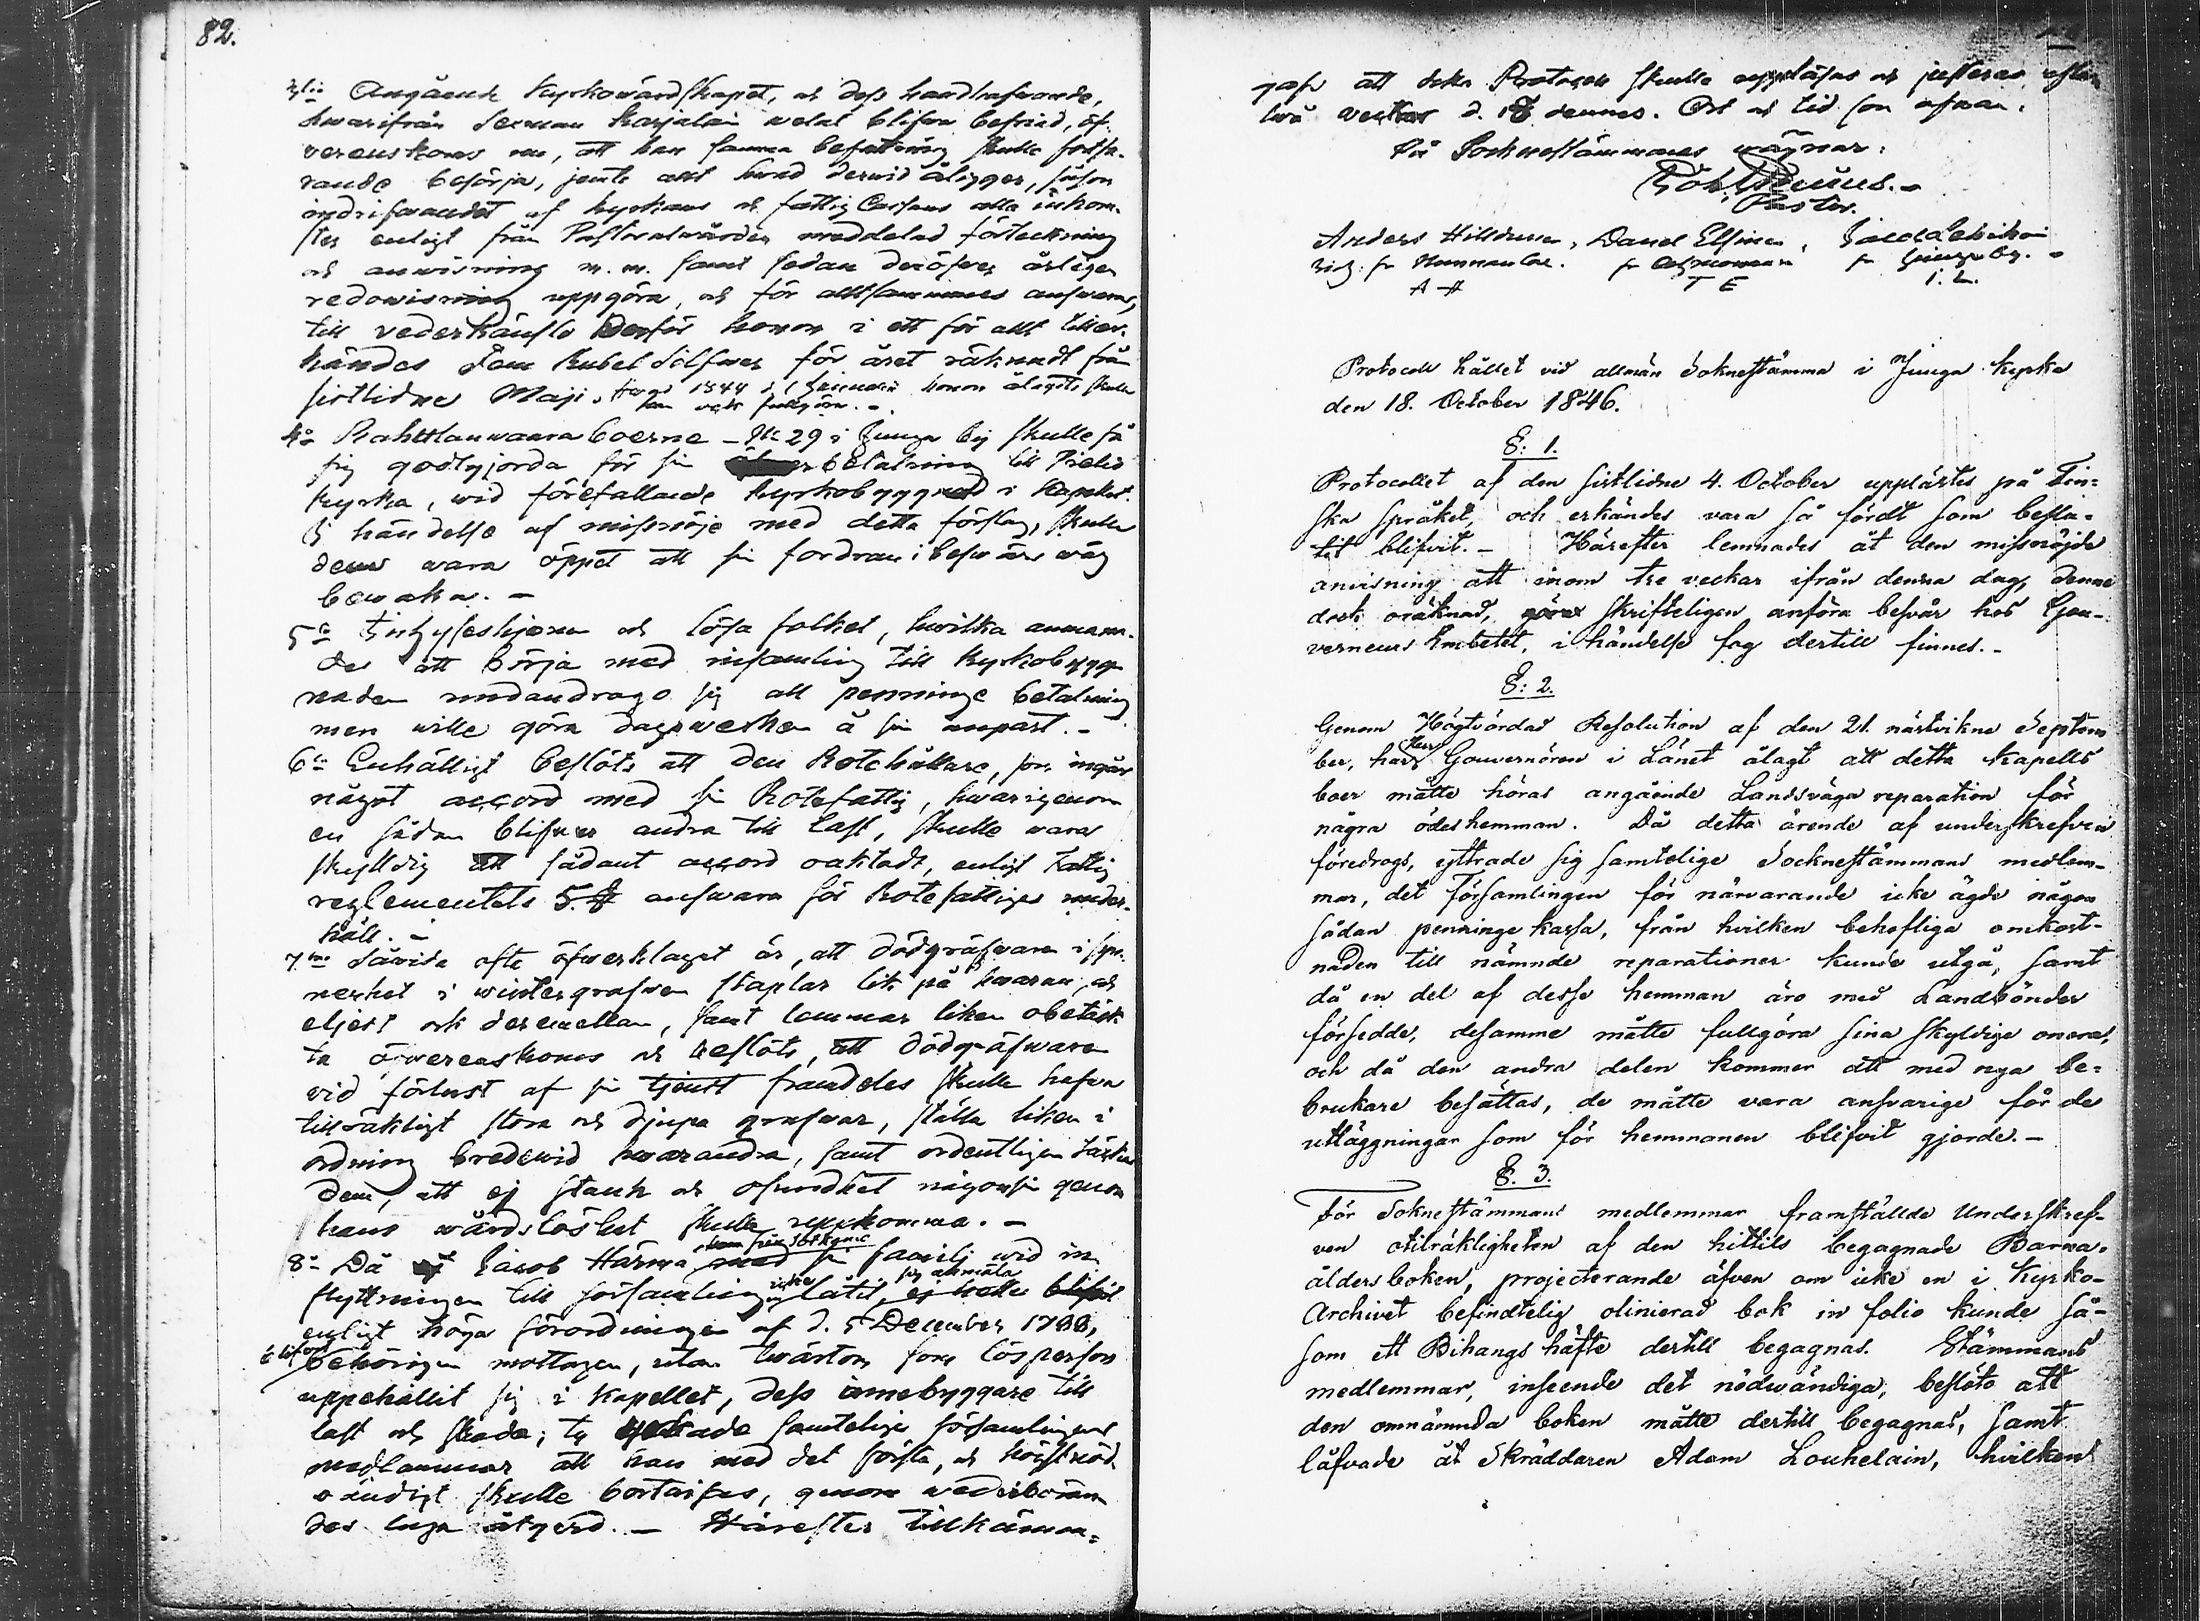 82.
3:tio Angående Kyrkovärdskapet, och dess handhafvande,
hwarifrån Sexman Karjalain welat blifwa befriad, öf-
verenskoms nu, att han samma befattning skulle fortfa-
rande besörja, jemte allt hvad derwid åligger, såsom
indrifwandet af kyrkans och fattig Cassans alla inkom-
ster enligt från Pastoralvården meddelad förteckning
och anvisning m. m. samt sedan deröfver årligen
redovisning uppgöra, och för alltsammans answara,
till vederkänsle derför honom i ett för allt tiller-
kändes fem Rubel Silfwer för året räknadt från
sistlidne Maji. 1844 honom ålagdt skulle
han ock fullgöra. -
4:o Rahttlanvaara boerne - No 29 i Juuga by skulle få
sig godtgjorda för sin betalning till Pielis
kyrka, wid förefallande kyrkobyggnad i Kapellet.
I händelse af missnöje med detta förslag, skulle
dem vara öppet att sin fordran i beswärs wäg
bewaka. -
5:o Inhyseshjonen och lösa folket, hwilka anmana-
des att börja med insamling till Kyrkobygg-
naden undandrogo sig all penninge betalning
men wille göra dagswerken å sin anpart. -
6:o Enhälligt beslöts att den Rotehållare, som ingår
något accord med sin Rotefattig, hwarigenom
en sådan blifwer andra till last, skulle vara
skylldig att sådant accord oaktadt, enligt Fattig
reglementets 5. § answara för Rotefattiges under-
håll. -
7:mo Såvida ofta öfwerklagat är, att dödgräfwaren i syn-
nerhet i wintergrafwen staplar lik på hwaran, och
eljest ock deremellan, samt lemnar liken obetäck-
ta öfverenskoms och beslöts, att dödgräfwaren
vid förlust af sin tjenst framdeles skulle hafwa
tillräkligt stora och djupa grafwar, ställa liken i
ordning bredewid hwarandra, samt ordentligen täcka
dem, att ej stank och osundhet någonsin genom
hans wårdslöshet skulle uppkomma. -
8:o Då Jacob Härma med sin familj wid in-
flyttningen till församlingen icke låtit sig anmäla
enligt höga förordningen af d. 5 December 1788,
blifwit behörigen mottagen, utan twärtom som lösperson
uppehållit sig i Kapellet, dess innebyggare till
last och skada; ty yrkade samtelige församlingens
medlemmar att han med det första, och högst nöd-
vändigt skulle bortwisas, genom wederböran-
des laga åtgerd. - Härefter tillkänna-
gafs att detta Protocoll skulle uppläsas och justeras efter
två veckor d. 18 dennes. Ort och tid som ofwan.
På Sockenstämmans wägnar:
Pastor.
Anders Hilldunen, Daniel Elfinen, Jacob Lehikoi
A H T E I. L.
Protocoll hållet vid allmän Sokneftämma i Juuga Kyrka
den 18. October 1846.
§: 1.
Protocollet af den sistlidne 4. October upplästes på Fin-
ska språket, och erkändes vara så fördt som beslu-
tit blifvit. - Härefter lemnades åt den missnöjde
anvisning att inom tre veckor ifrån denna dag, denne
dock oräknad, skrifteligen anföra besvär hos Gou-
verneurs Embetet, i händelse fog dertill finnes. -
§: 2.
Genom Högtvördad Resolution af den 21. nästvikne Septem
ber, har Herr Gouvernören i Länet ålagt att detta Kapells
boer måtte höras angående Landsväga reparation för
några ödeshemman. Då detta ärende af underskrefven
föredrogs, yttrade sig samtelige Socknestämmans medlem-
mar, det Församlingen för närvarande icke ägde någon
sådan penninge kassa, från hvilken behöfliga omkost-
naden till nämnde reparationer kunde utgå, samt
då en del af desse hemman äro med Landbönder
försedde, desamme måtte fullgöra sina skyldige onera,
och då den andra delen kommer att med nya be-
brukare besättas, de måtte vara ansvarige för de
utläggningar som för hemmanen blifvit gjorde. -
§. 3.
För Soknestämmans medlemmar framställde Underskref-
ven otilräkligheten af den hittils begagnade Barna-
åldersboken, projecterande äfven om icke en i Kyrko-
Archivet befindtelig olinierad bok in folio kunde så-
som ett Bihangs häfte dertill begagnas. Stämmans
medlemmar, inseende det nödvändiga, beslöto att
den omnämnda boken måtte dertill begagnas, samt
låfvade åt Skräddaren Adam Louhelain, hvilken